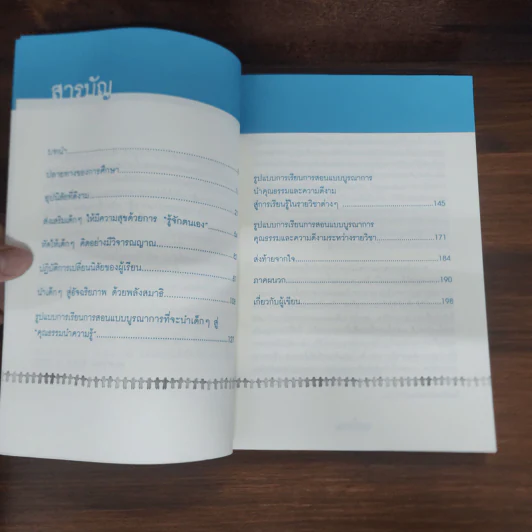 สารบัญ
บทนำ
ปลายทางของการศึกษา
อุปนิสัยที่ดีงาม
ส่งเสริมเด็กๆ ให้มีความสุขด้วยการ "รู้จักตนเอง"
หัดให้เด็กๆ คิดอย่างมีวิจารณญาณ
ปฏิบัติการเปลี่ยนนิสัยของผู้เรียน
นำเด็กๆ สู่อัจฉริยภาพ ด้วยพลังสมาธิ
รูปแบบการเรียนการสอนแบบบูรณาการที่จะนำเด็กๆ สู่
"คุณธรรมนำความรู้"
รูปแบบการเรียนการสอนแบบบูรณาการ
นำคุณธรรมและความดีงาม
สู่การเรียนรู้ในรายวิชาต่างๆ ........................ 145
รูปแบบการเรียนการสอนแบบบูรณาการ
คุณธรรมและความดีงามระหว่างรายวิชา ................ 171
ส่งท้ายจากใจ ........................ 184
ภาคผนวก ........................ 190
เกี่ยวกับผู้เขียน ........................ 198